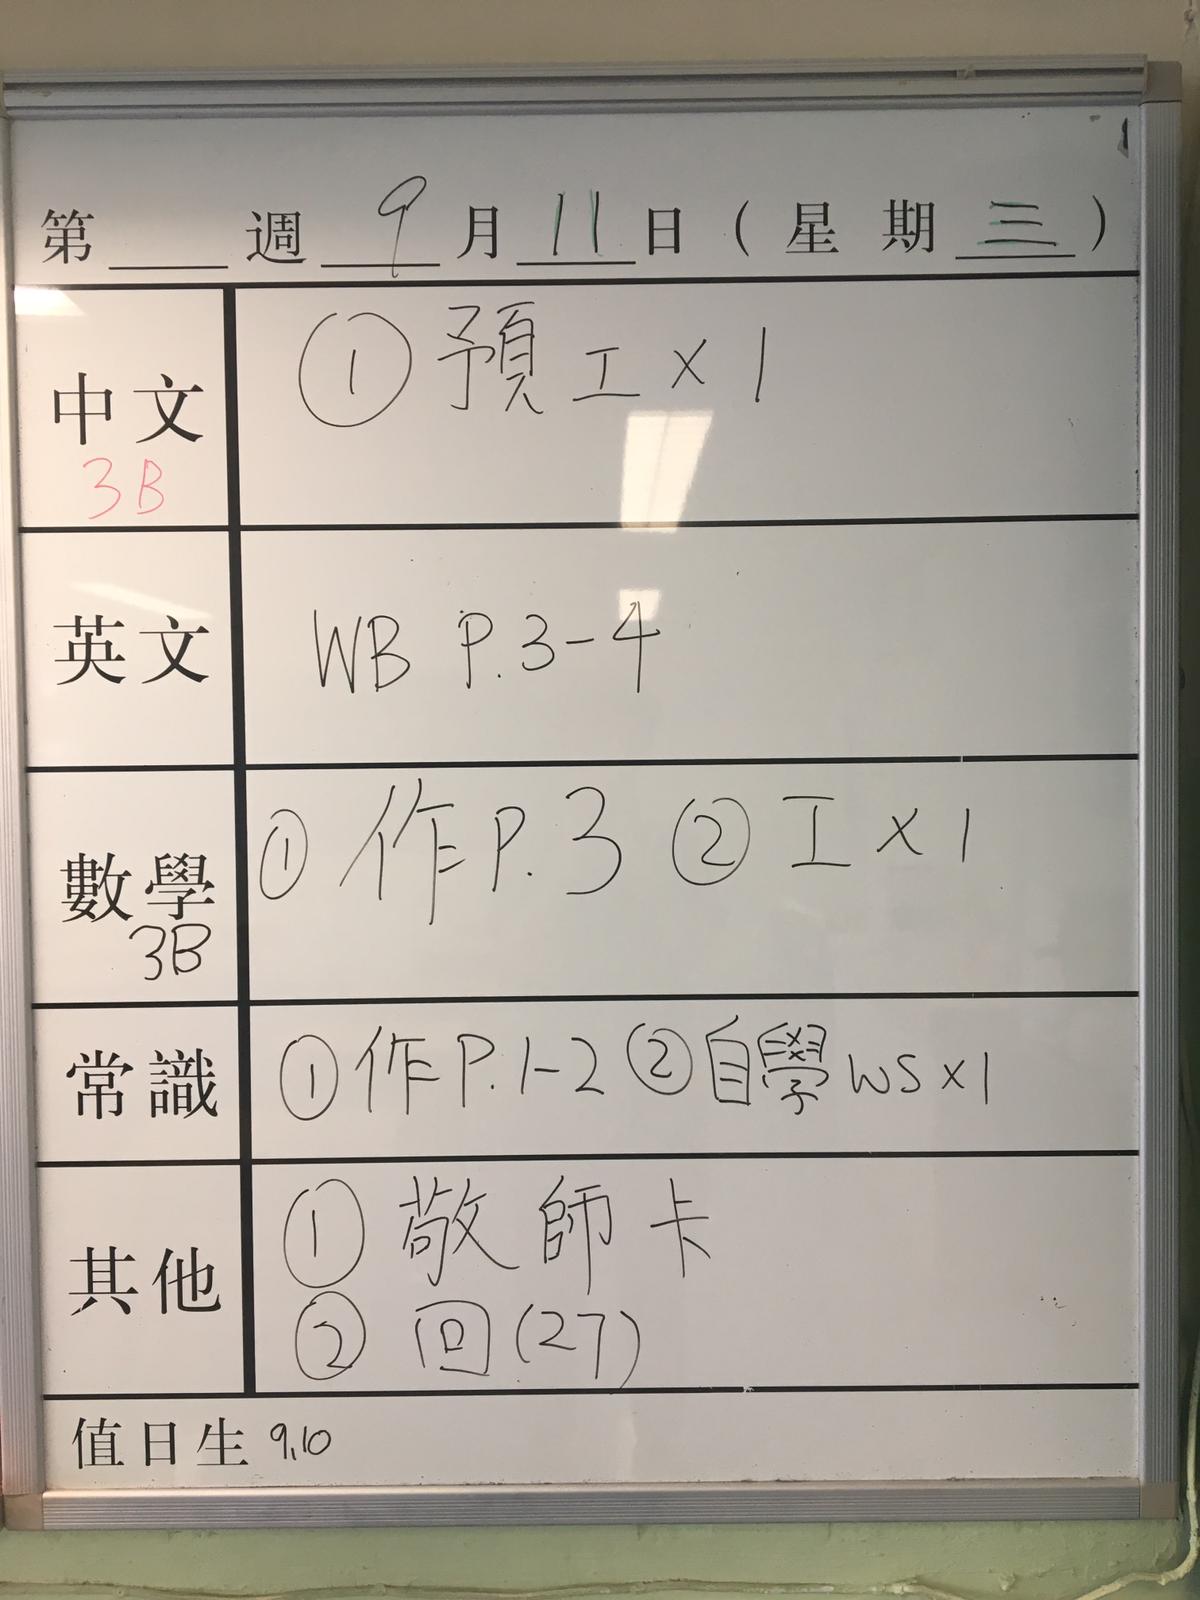 第 週 9 月 11 日 ( 星 期 三 )
中文
3B
① 預工 x 1
英文
WB P.3-4
數學
3B
① 作 P.3 ② 工 x 1
常識
① 作 P.1-2 ② 自學 WS x 1
其他
① 敬師卡
② 回 (27)
值日生 9,10